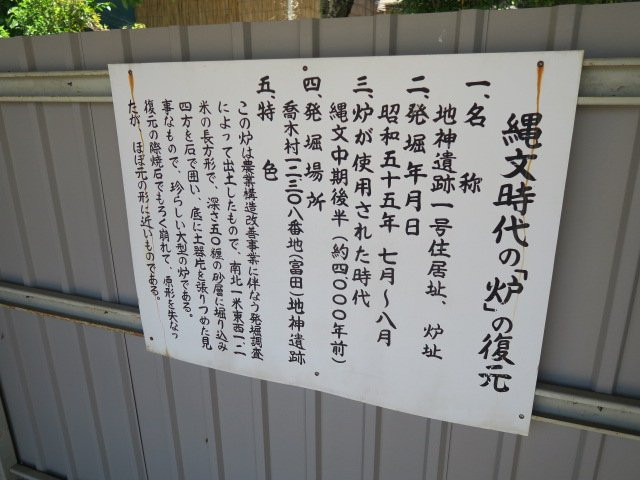 縄文時代の「炉」の復元
一、名称
地神遺跡一号住居址、炉址
二、発掘年月日
昭和五十五年 七月〜八月
三、炉が使用された時代
縄文中期後半(約四、〇〇〇年前)
四、発掘場所
喬木村一二、三〇八番地(富田)地神遺跡
五、特色
この炉は農業構造改善事業に伴なう発掘調査
によって出土したもので、南北一米東西一・二
米の長方形で、深さ五〇糎の砂層に掘り込み
四方を石で囲い、底に土器片を張りつめた見
事なもので、珍らしい大型の炉である。
復元の際焼石でもろく崩れて、原形を失なっ
たが、ほぼ元の形に近いものである。